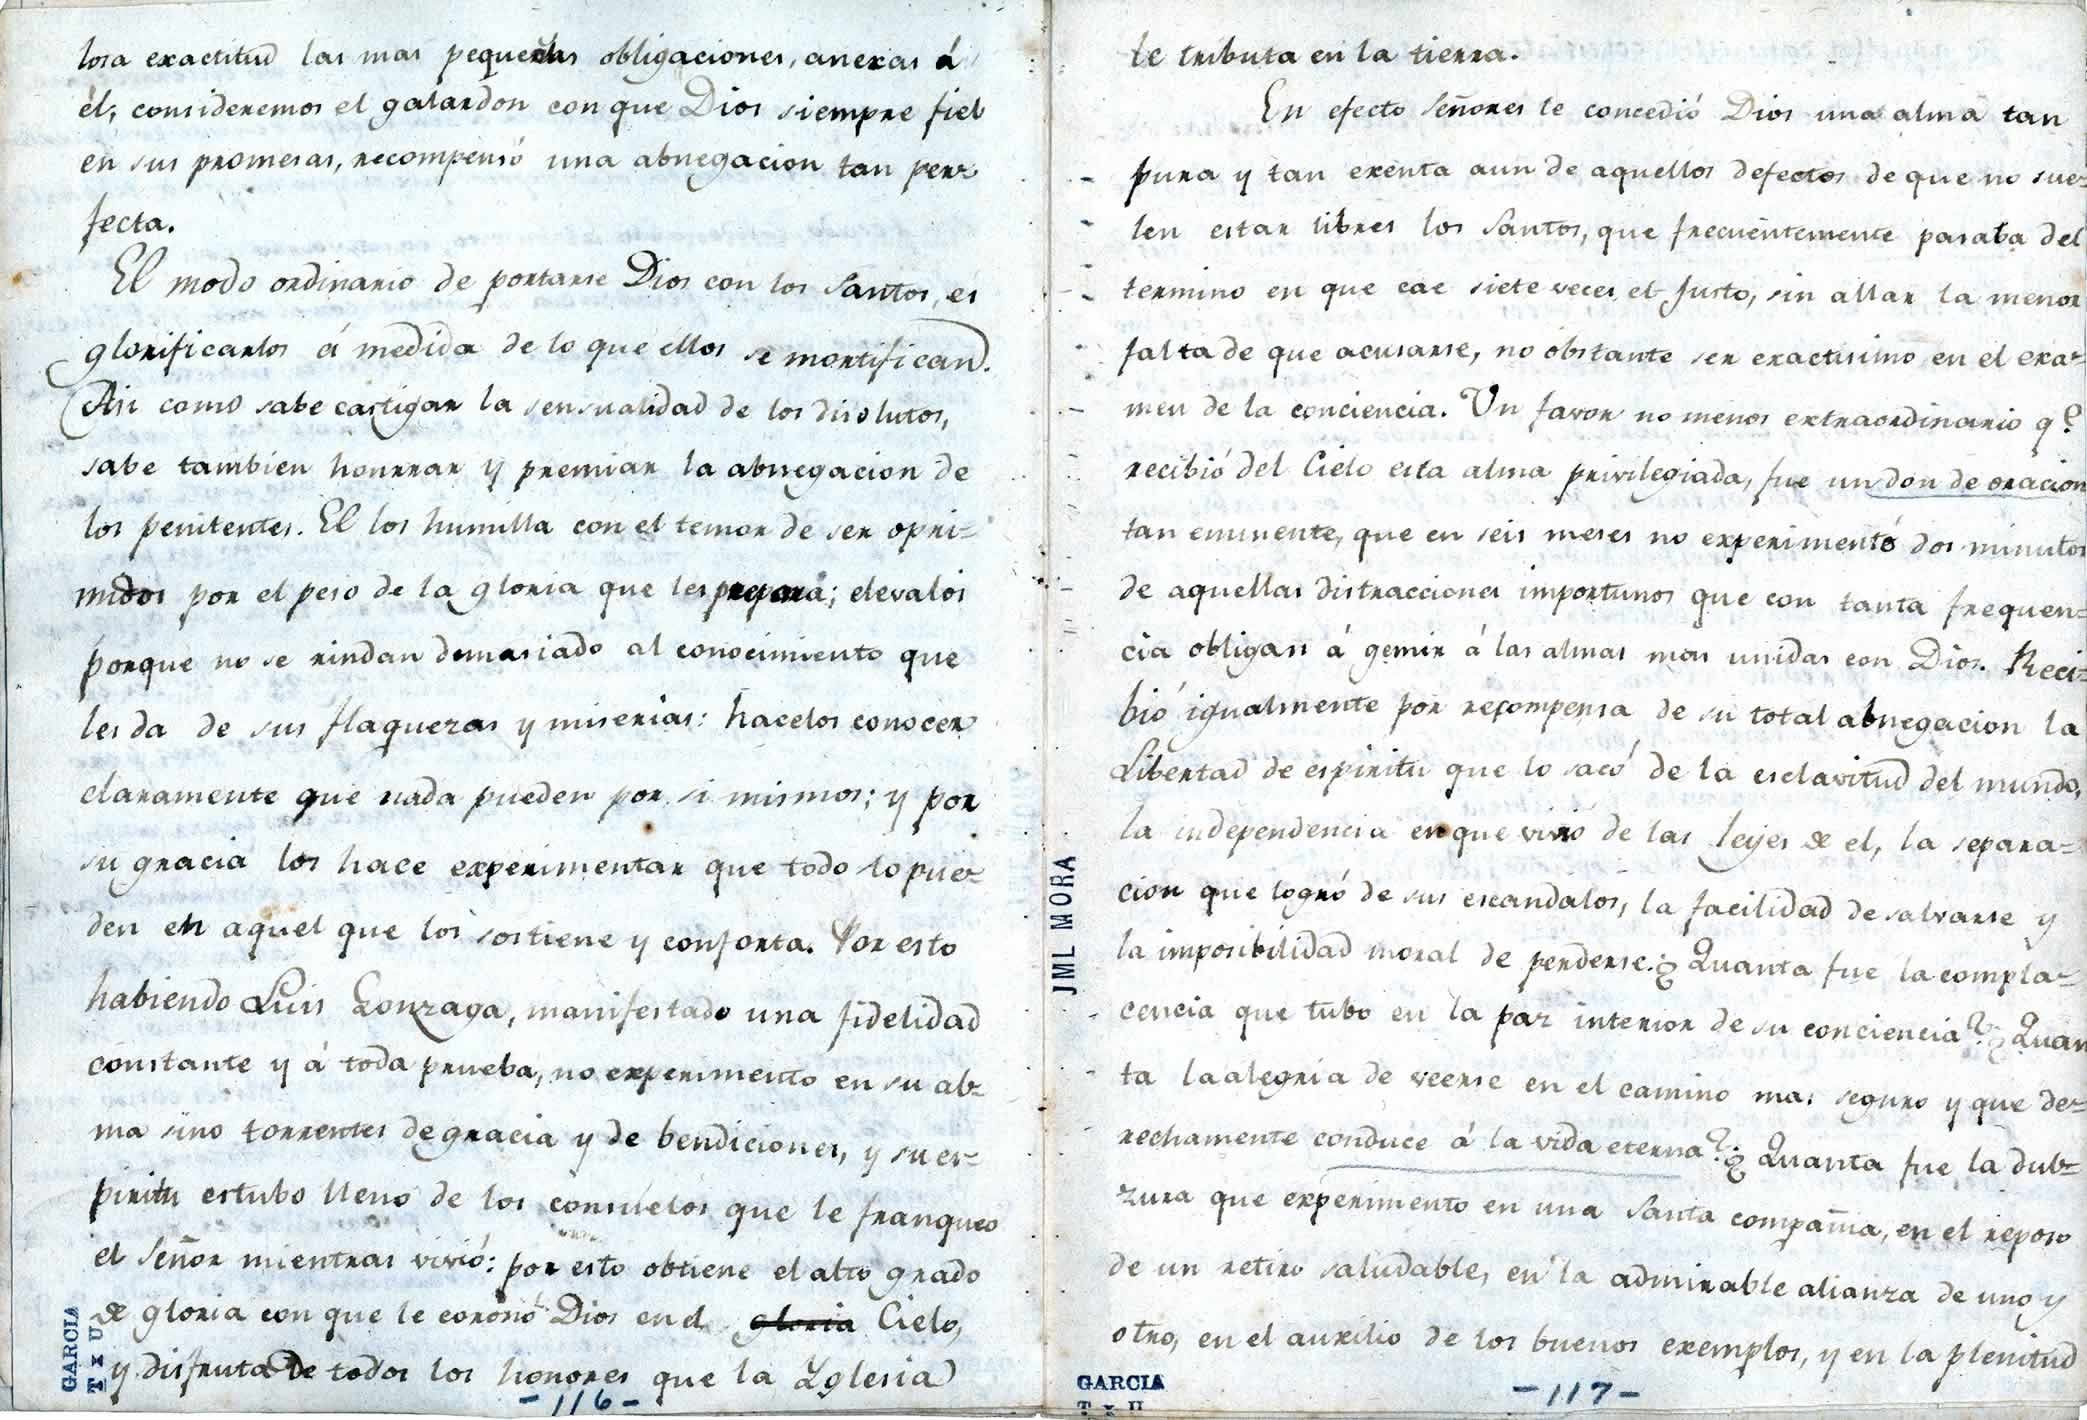 losa exactitud las mas pequeñas obligaciones, anexas á
él, consideremos el galardon con que Dios siempre fiel
en sus promesas, recompensó una abnegacion tan per-
fecta.
El modo ordinario de portarse Dios con los Santos, es
glorificarlos á medida de lo que ellos se mortifican.
Asi como sabe castigar la sensualidad de los disolutos,
sabe tambien honrrar y premiar la abnegacion de
los penitentes. El los humilla con el temor de ser opri=
midos por el peso de la gloria que les prepara; elevalos
porque no se rindan demasiado al conocimiento que
les da de sus flaquezas y miserias: hacelos conocer
claramente que nada pueden por si mismos; y por
su gracia los hace experimentar que todo lo pue-
den en aquel que los sostiene y conforta. Por esto
habiendo Luis Gonzaga, manifestado una fidelidad
constante y á toda prueba, no experimento en su al-
ma sino torrentes de gracia y de bendiciones, y su es-
piritu estubo lleno de los consuelos que le franqueo
el Señor mientras vivió: por esto obtiene el alto grado
de gloria con que le coronó Dios en el gloria Cielo,
y disfruta de todos los honores que la Yglesia
-116-
GARCIA
T x U
le tributa en la tierra.
En efecto Señores le concedió Dios una alma tan
pura y tan exenta aun de aquellos defectos de que no sue-
len estar libres los Santos, que frecuentemente pasaba del
termino en que cae siete veces el Justo, sin allar la menor
falta de que acusarse, no obstante ser exactisimo en el exa-
men de la conciencia. Un favor no menos extraordinario q.e
recibió del Cielo esta alma privilegiada, fue un don de oracion
tan eminente, que en seis meses no experimentó dos minutos
de aquellas distracciones importunos que con tanta frequen=
cia obligan á gemir á las almas mas unidas con Dios. Reci=
bió igualmente por recompensa de su total abnegacion la
Libertad de espiritu que lo sacó de la esclavitud del mundo,
la independencia en que vivió de las leyes de el, la separa=
cion que logró de sus escandalos, la facilidad de salvarse y
la imposibilidad moral de perderse. ¿Quanta fue la compla-
cencia que tubo en la paz interior de su conciencia? ¿Quan
ta la alegria de veerse en el camino mas seguro y que de=
rechamente conduce á la vida eterna? ¿Quanta fue la dul-
zura que experimento en una Santa compañia, en el reposo
de un retiro saludable, en la admirable alianza de uno y
otro, en el auxilio de los buenos exemplos, y en la plenitud
-117-
JML MORA
GARCIA
T x U